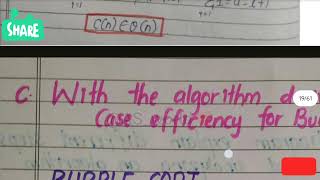 SHARE
C(n) ∈ Θ(n)
C. With the algorithm d
19/61
Case efficiency for Bu
BUBBLE SORT